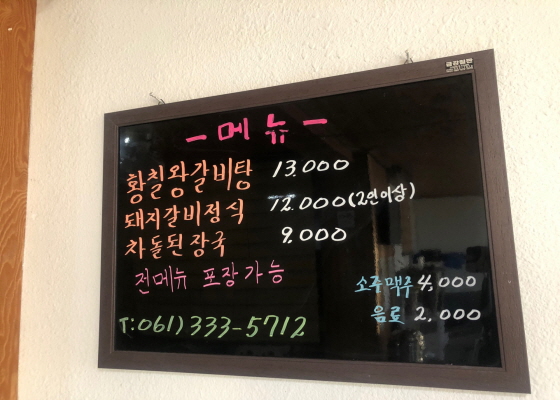 - 메뉴 -
황칠왕갈비탕 13.000
돼지갈비정식 12.000(2인이상)
차돌된장국 9.000
전메뉴 포장가능
소주맥주 4,000
음료 2,000
T:061)333-5712